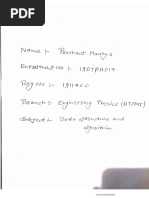 Name :- Prashant Maurya
Enrollment No :- 18DTPH017
Reg No :- 1811400
Branch :- Engineering Physics (BT/MT)
Subject :- Data structure and
algorithm